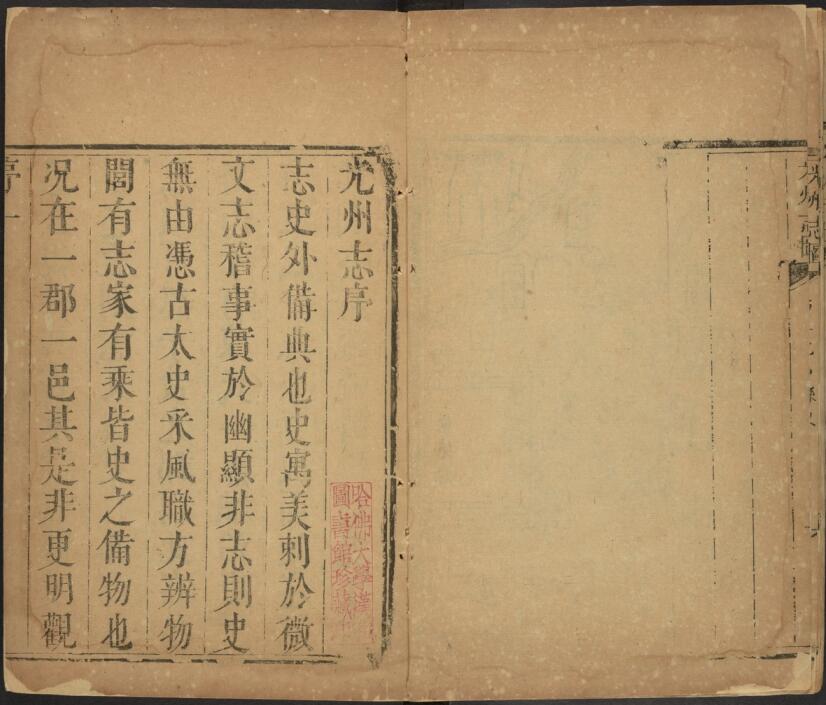 光州志序
志史外備典也史寓美刺於微
文志稽事實於幽顯非志則史
無由憑古太史采風職方辨物
閭有志家有乘皆史之備物也
況在一郡一邑其是非更明觀
序一
哈佛大學漢
圖書館珍藏